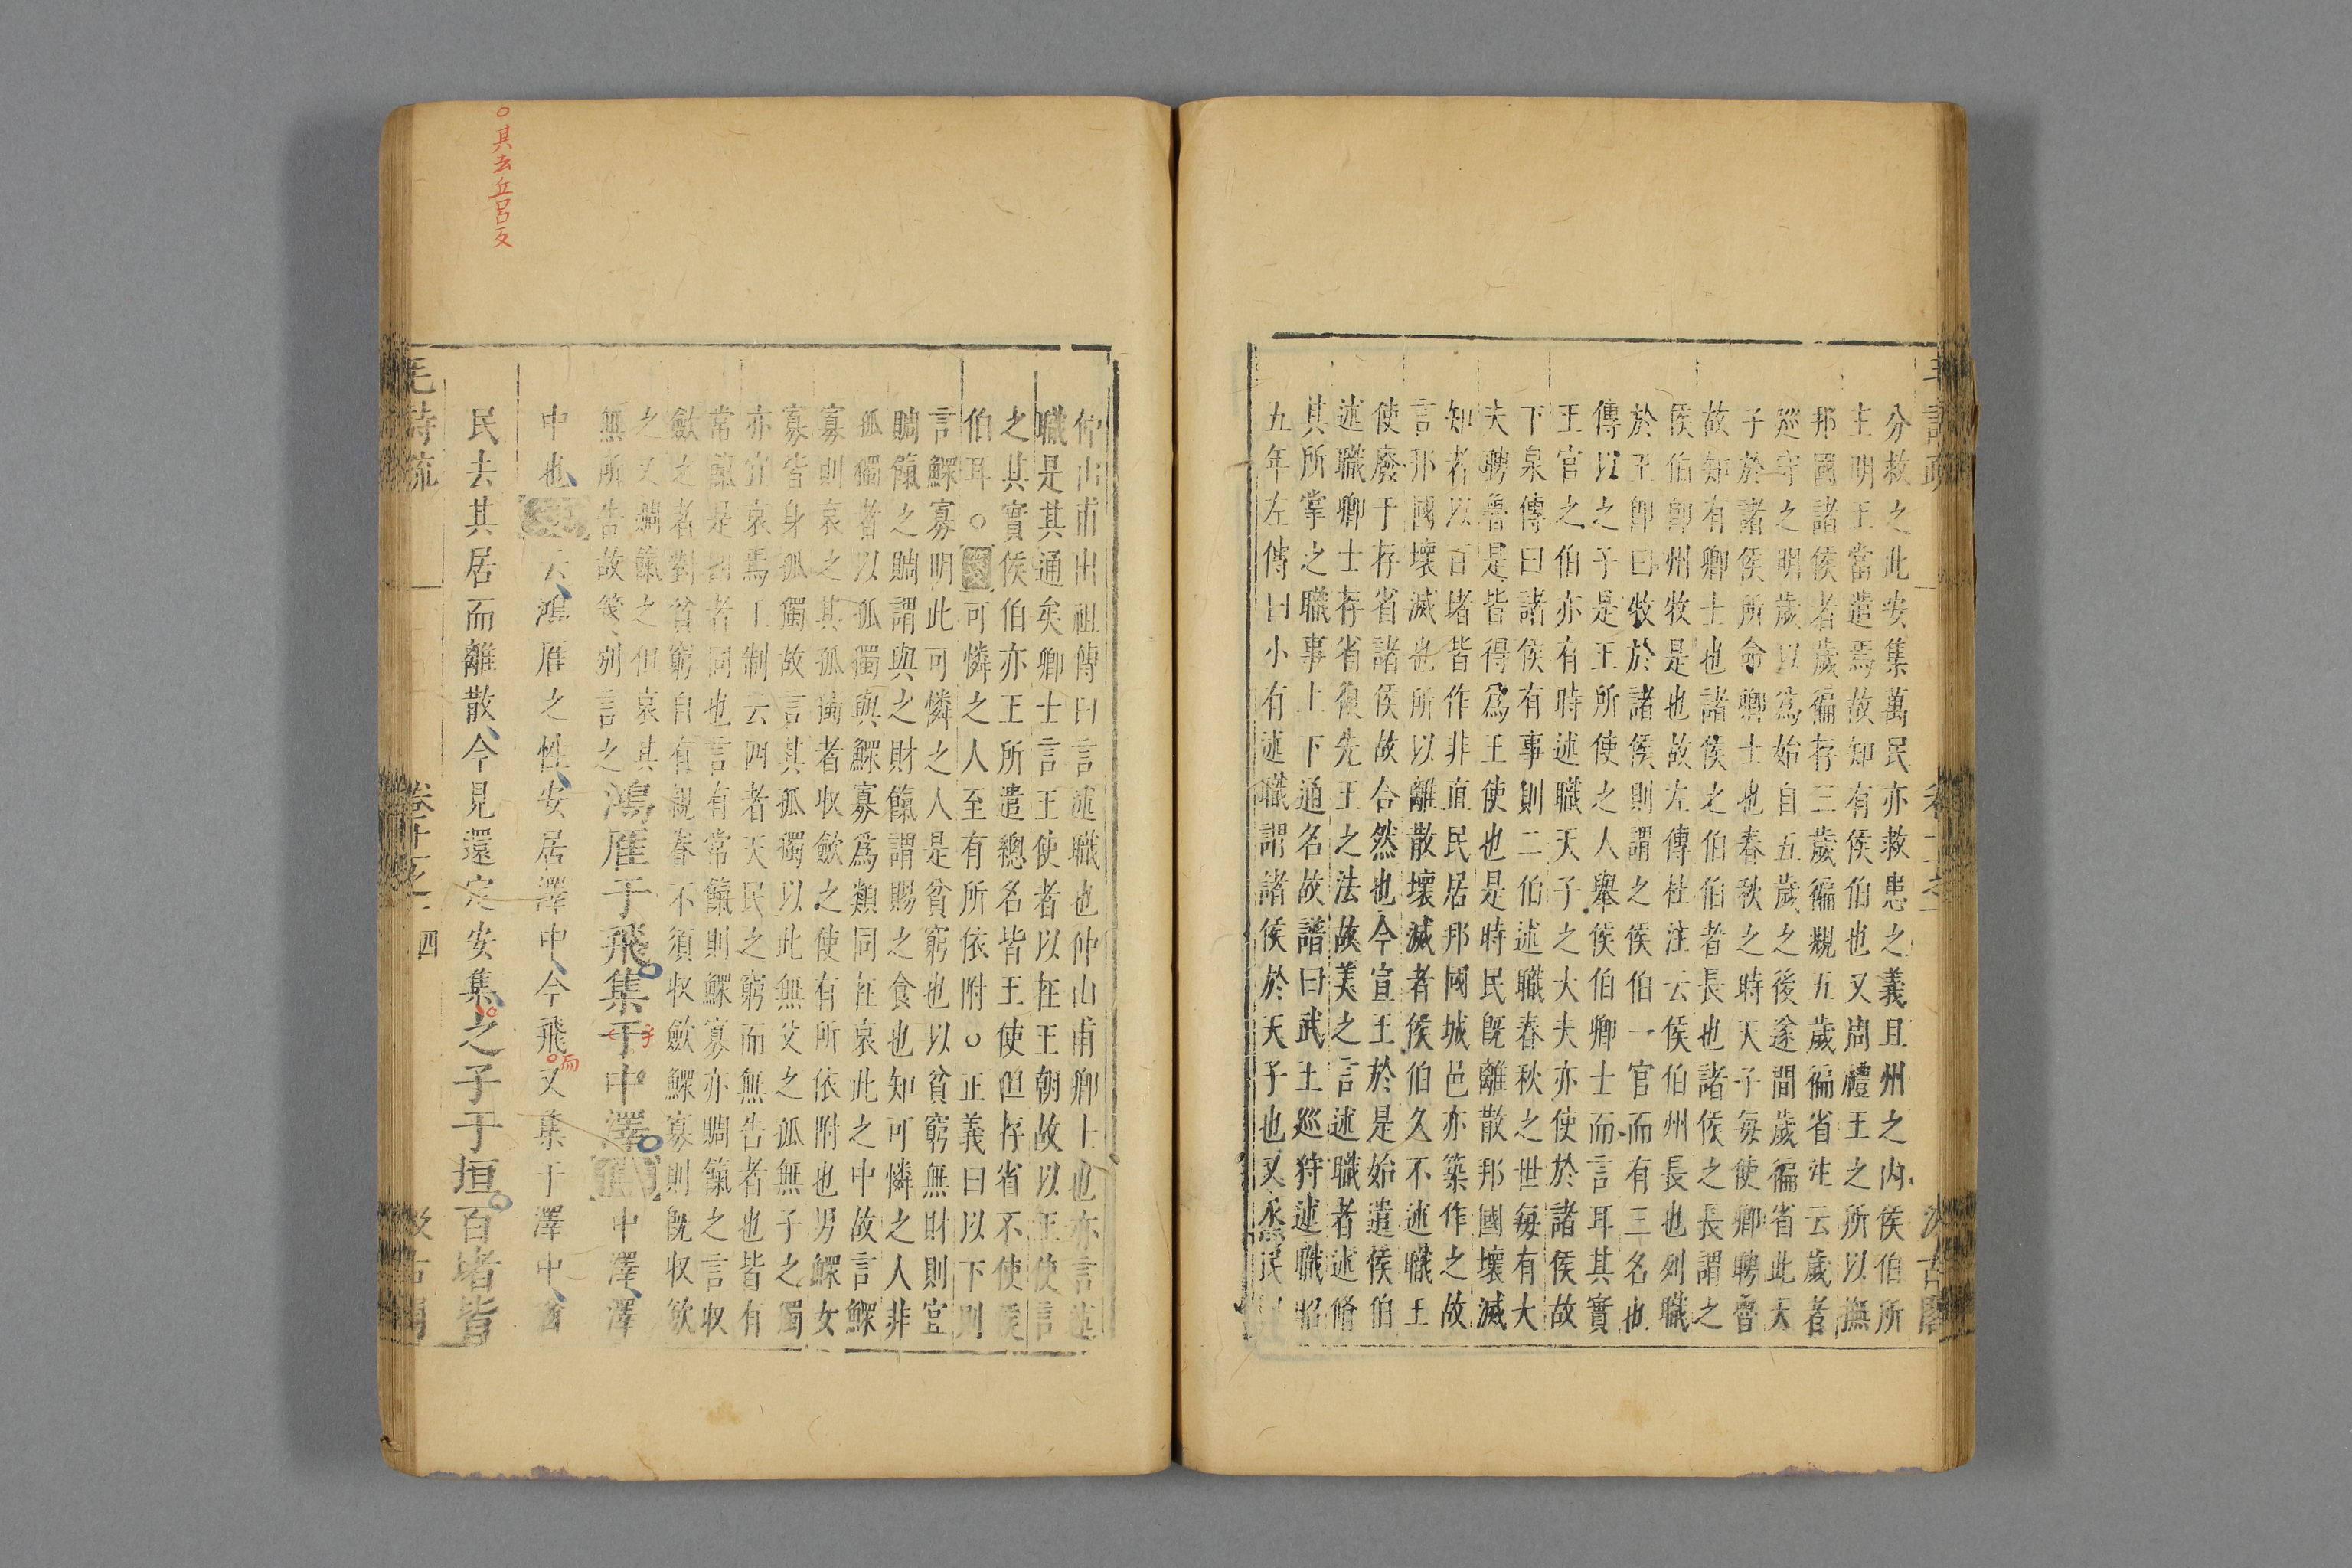 毛詩疏
分救之此安集萬民亦救患之義且州之內侯伯所
主明王當遣焉故知有侯伯也又周禮王之所以撫
邦國諸侯者歲徧存三歲徧覜五歲徧省注云歲者
巡守之明歲以爲始自五歲之後遂間歲徧省此天
子於諸侯所命卿士也春秋之時天子每使卿聘魯
故知有卿士也諸侯之伯伯者長也諸侯之長謂之
侯伯卽州牧是也故左傳杜注云侯伯州長也列職
於王卽曰牧於諸侯則謂之侯伯一官而有三名也
傳以之子是王所使之人舉侯伯卿士而言耳其實
王官之伯亦有時述職天子之大夫亦使於諸侯故
下泉傳曰諸侯有事則二伯述職春秋之世每有大
夫聘魯是皆得爲王使也是時民旣離散邦國壞滅
知者以百堵皆作非直民居邦國城邑亦築作之故
言邦國壞滅也所以離散壞滅者侯伯久不述職王
使廢于存省諸侯故合然也今宣王於是始遣侯伯
述職卿士存省復先王之法故美之言述職者述脩
其所掌之職事上下通名故譜曰武王巡狩述職昭
五年左傳曰小有述職謂諸侯於天子也又烝民
仲山甫出祖傳曰言述職也仲山甫卿士也亦言述
職是其通矣卿士言王使者以在王朝故以王使言
之其實侯伯亦王所遣總名皆王使但存省不使侯
伯耳○可憐之人至有所依附○正義曰以下則
言鰥寡明此可憐之人是貧窮也以貧窮無財則宜
賙餼之賙謂與之財餼謂賜之食也知可憐之人非
孤獨者以孤獨與鰥寡爲類同在哀此之中故言鰥
寡則哀之其孤獨者收歛之使有所依附也男鰥女
寡皆身孤獨故言其孤獨以此無父之孤無子之獨
亦宜哀焉王制云四者天民之窮而無告者也皆有
常餼是四者同也言有常餼則鰥寡亦賙餼之言收
歛之者對貧窮自有親眷不須收歛鰥寡則旣收歛
之又賙餼之但哀其
無所告故箋別言之鴻鴈于飛集于中澤中澤澤
中也云鴻鴈之性安居澤中今飛又集于澤中猶
民去其居而離散今見還定安集之子于垣百堵皆
毛詩疏 卷十一之一 四
○其去丘呂反
而